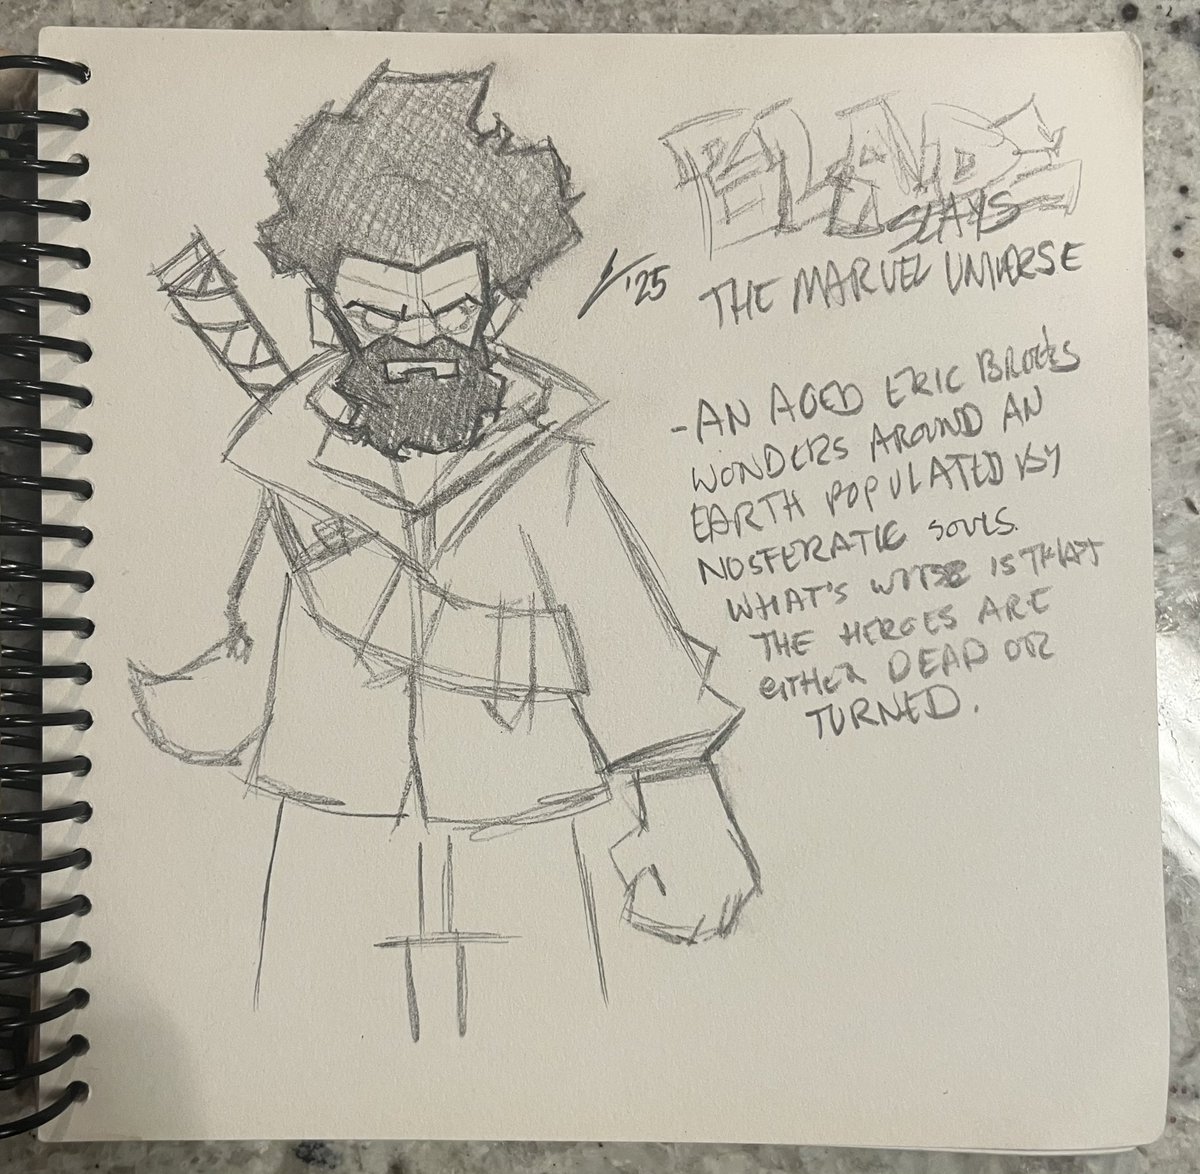 BLADE
SLAYS
THE MARVEL UNIVERSE
'25
-AN AGED ERIC BROOKS
WONDERS AROUND AN
EARTH POPULATED BY
NOSFERATIC SOULS.
WHAT'S WORSE IS THAT
THE HEROES ARE
EITHER DEAD OR
TURNED.